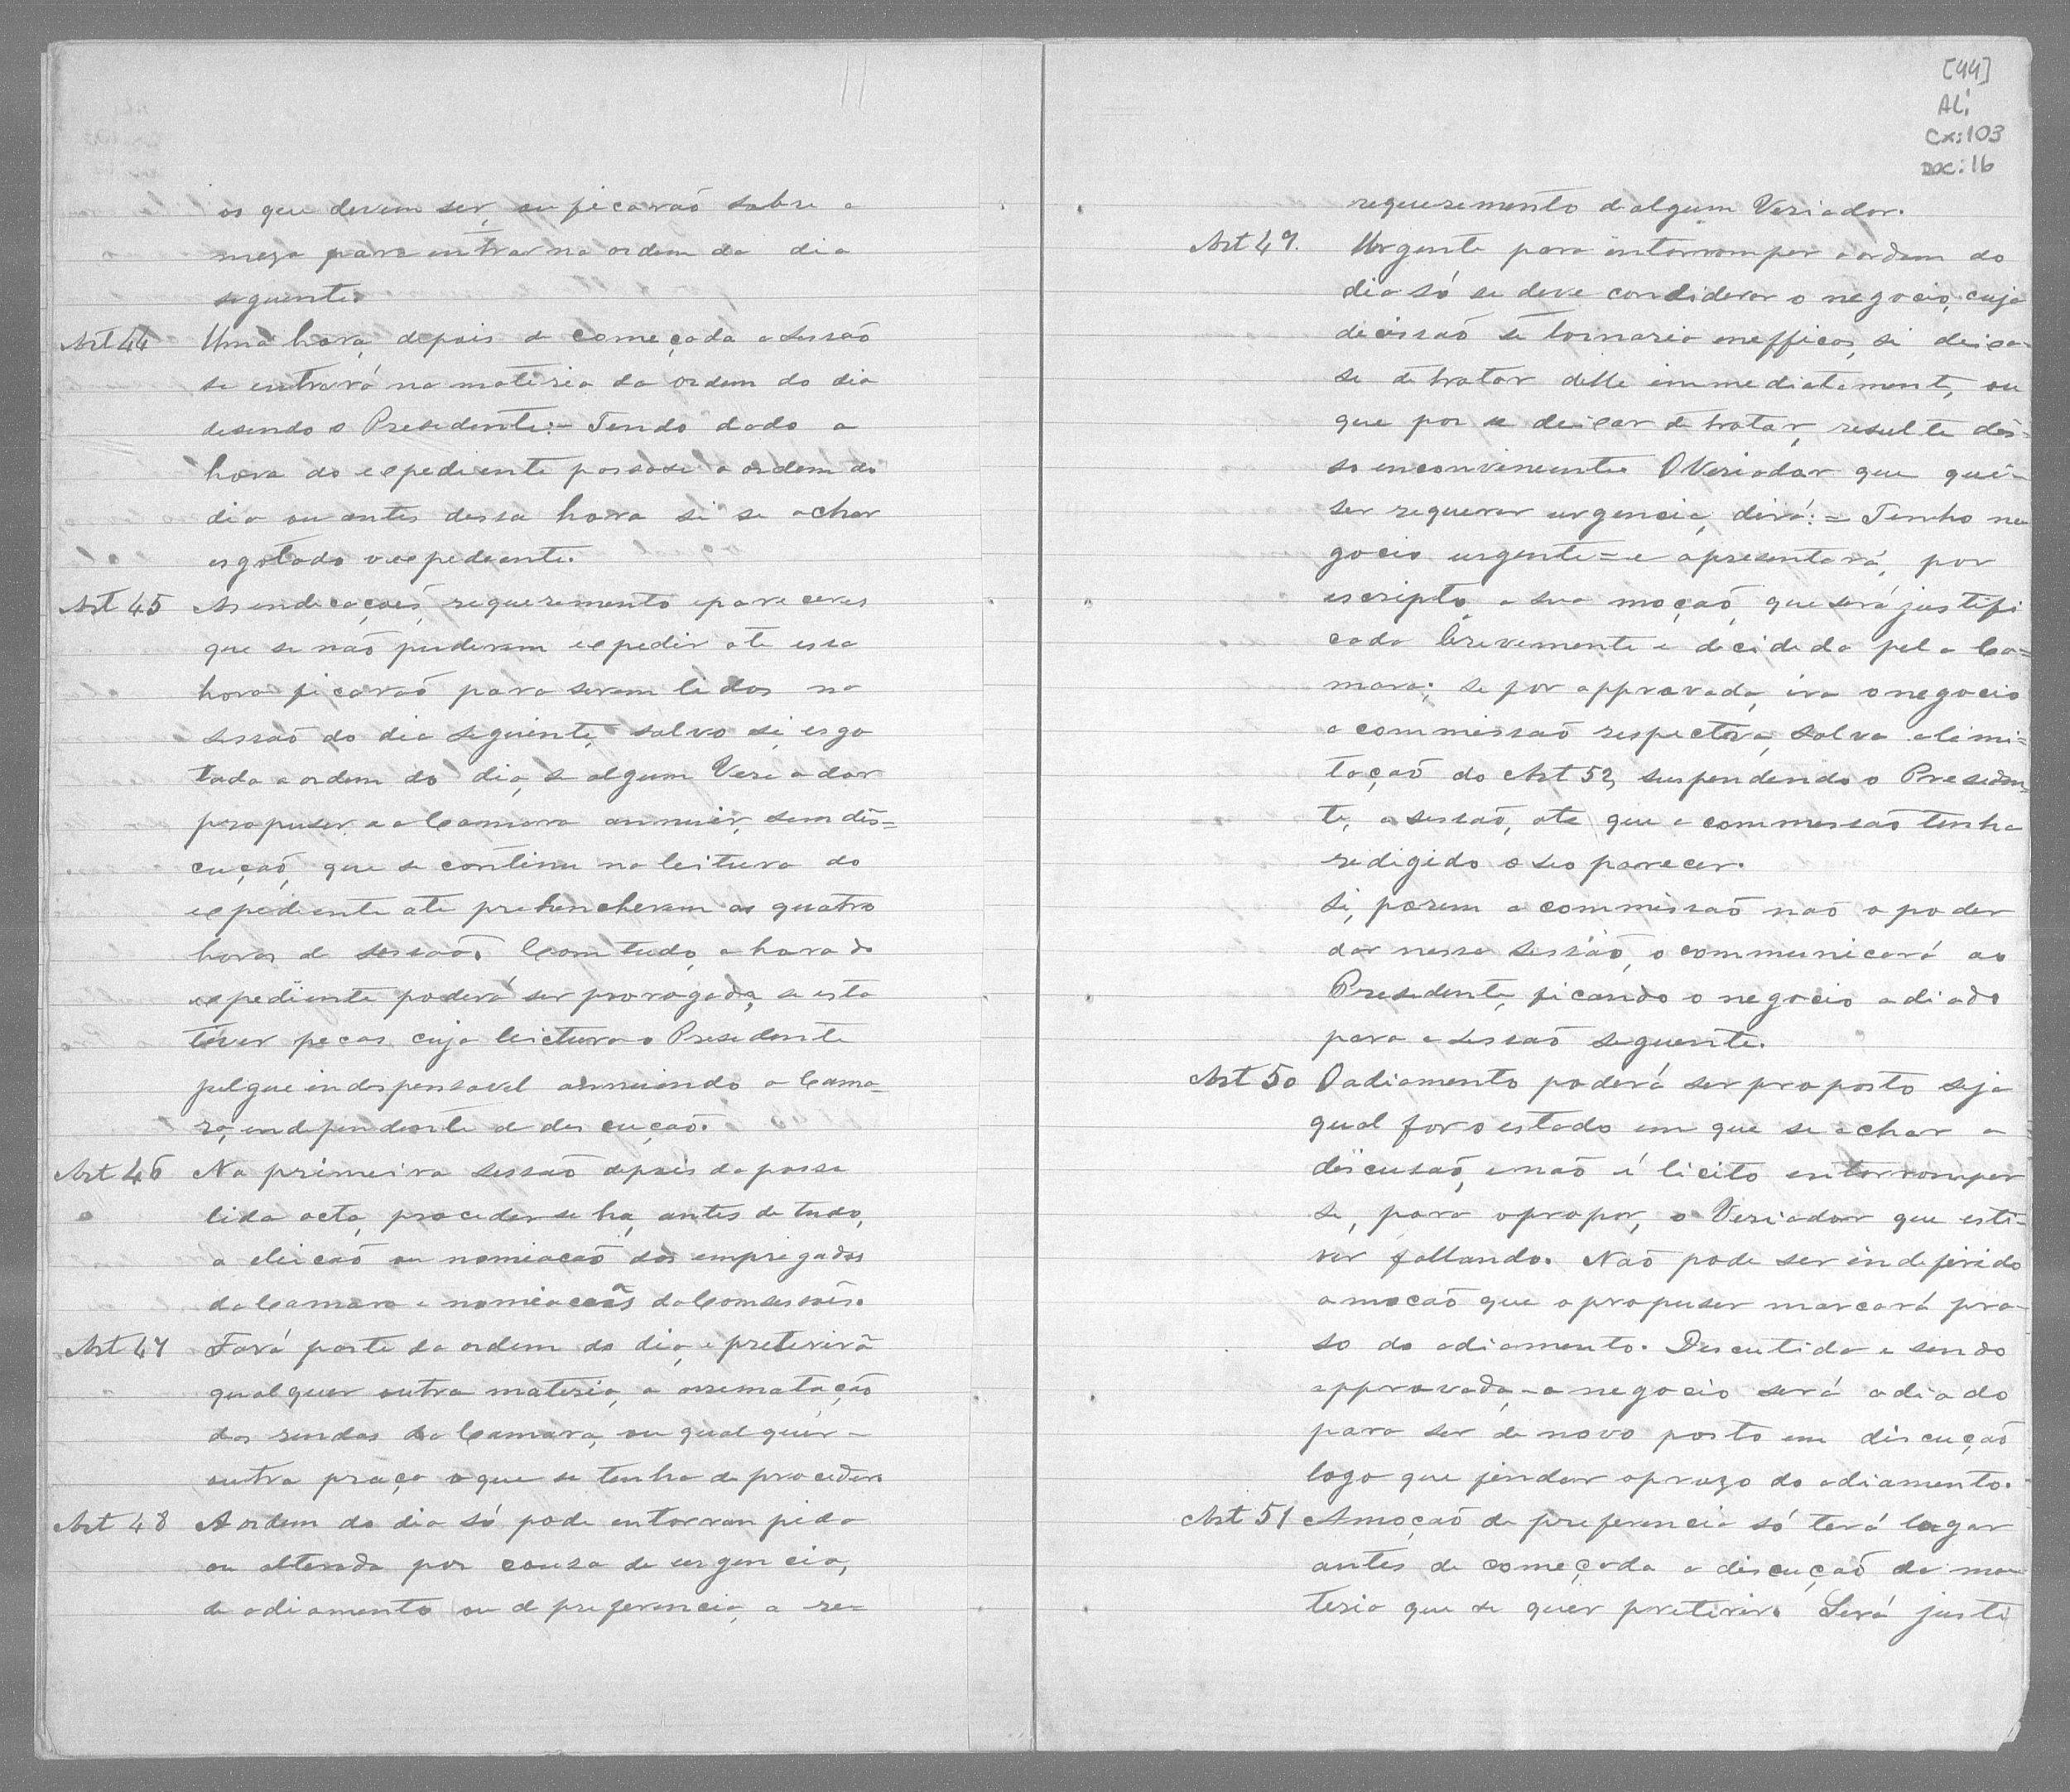 11
os que devem ser, ou ficaraõ sobre a
meza para entrar na ordem do dia
seguinte.
Art 44 Uma hora, depois de começada a sessaõ
se entrará na materia da ordem do dia
disendo o Presidente:- Tendo dado a
hora do expediente passase a ordem do
dia ou antes dessa hora si se achar
esgotado o expediente.
Art 45 As indicações, requerimento e pareceres
que se naõ puderem expedir ate essa
hora ficaraõ para serem lidos na
sessaõ do dia seguinte, salvo si, esgo
tada a ordem do dia, se algum Veriador
propuser a a Camara annuir, sem dis=
cuçaõ, que se continu na leitura do
expediente ate prehencherem as quatro
horas de sessaõ. Com tudo, a hora do
expediente poderá ser prorogada, se esta
tiver peças cuja lictura o Presidente
julgue indespensavel annuindo a Cama-
ra, independente de descuçaõ.
Art 46 Na primeira sessaõ depois da posse
lida acta, proceder se ha, antes de tudo,
a eleicaõ ou nomiacaõ dos empregados
da Camara e nomiacoẽs da Comsessoẽs.
Art 47 Fará parte da ordem do dia, e preterirã
qualquer outra materia, a arrematação
das rendas da Camara, ou qualquer -
outra praça a que se tenha de proceder.
Art 48 A ordem do dia só pode entorrompida
ou alterada por causa de urgencia,
de adiamento ou de preferencia, a re=
[44]
ALI
Cx:103
Doc:16
requerimento dalgum Veriador.
Art 49. Urgente para interromper a ordem do
dia só se deve considerar o negocio, cuja
decissaõ se tornaria inefficas, si deixa-
se de tratar delle immediatamente, ou
que por se deixar de tratar, resulte des-
so inconviniente. O Veriador que qui-
ser requerer urgencia, dirá: = Tenho ne
gocio urgente = e apresentará, por
escripto a sua moçaõ, que será justifi
cada brevemente e decidida pela Ca=
mara; se for approvada, ira o negocio
a commissaõ respectiva, salva a limi=
taçaõ do Art 52, suspendendo o Presiden
te, a sessaõ, ate que a commissaõ tenha
redigido o seo parecer.
Si, porem a commissaõ naõ o poder
dar nessa sessaõ, o communicará ao
Presidente, ficando o negocio adiado
para a sessaõ seguinte.
Art 50 O adiamento poderá ser proposto seja
qual for o estado em que se achar a
discusaõ, e naõ é licito entorromper
se, para o propor, o Veriador que esti-
ver fallando. Naõ pode ser indeferido
a mocaõ que o propuser marcará pra-
so do adiamento. Discutida e sendo
approvada, o negocio será adiado
para ser de novo posto em discuçaõ
logo que findar o prazo do adiamento.
Art 51 A moçaõ de preferencia só terá lugar
antes de começada a discuçaõ da ma
teria que se quer preterir. Será justi